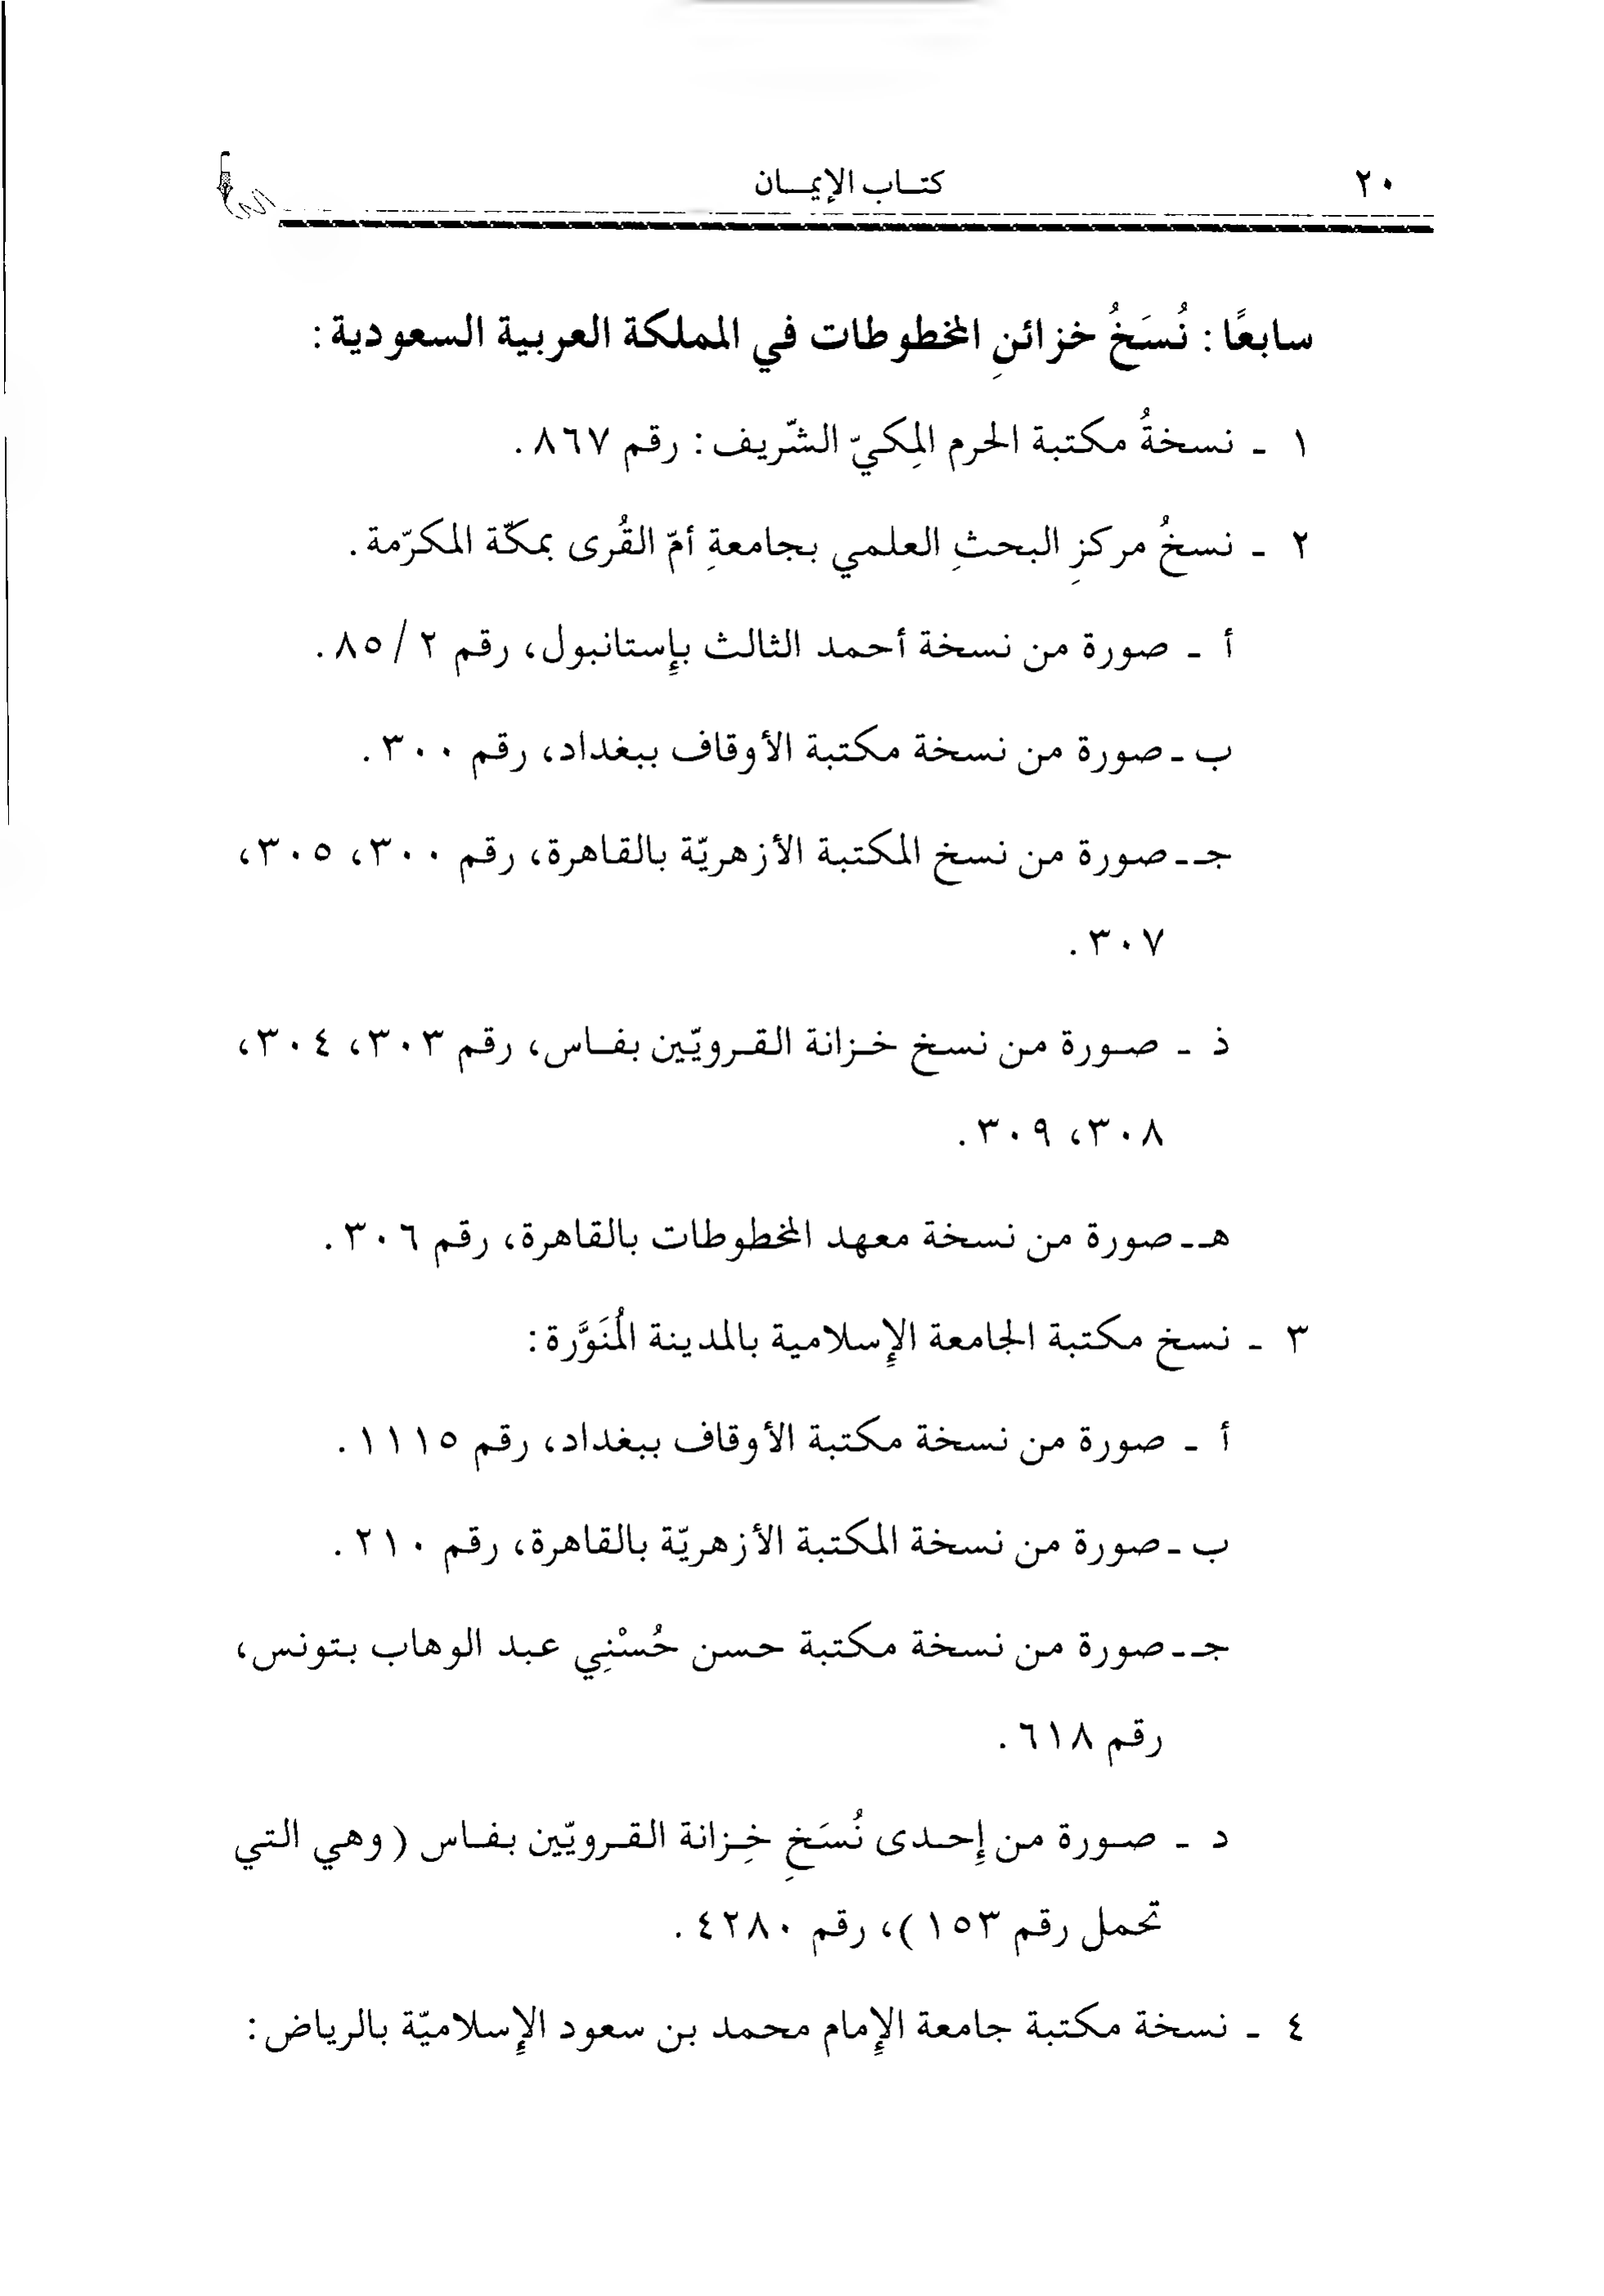 ٢٠
كتاب الإيمان
سابعًا: نُسَخُ خزائنِ المخطوطات في المملكة العربية السعودية:
١ ـ نسخةُ مكتبة الحرم المِكيّ الشّريف: رقم ٨٦٧.
٢ ـ نسخُ مركزِ البحثِ العلمي بجامعةِ أمّ القُرى بمكّة المكرّمة.
أ ـ صورة من نسخة أحمد الثالث بإستانبول، رقم ٨٥/٢.
ب ـ صورة من نسخة مكتبة الأوقاف ببغداد، رقم ٣٠٠.
جـ ـ صورة من نسخ المكتبة الأزهريّة بالقاهرة، رقم ٣٠٠، ٣٠٥،
٣٠٧.
ذ ـ صورة من نسخ خزانة القرويّين بفاس، رقم ٣٠٣، ٣٠٤،
٣٠٨، ٣٠٩.
هـ ـ صورة من نسخة معهد المخطوطات بالقاهرة، رقم ٣٠٦.
٣ ـ نسخ مكتبة الجامعة الإسلامية بالمدينة المُنَوَّرة:
أ ـ صورة من نسخة مكتبة الأوقاف ببغداد، رقم ١١١٥.
ب ـ صورة من نسخة المكتبة الأزهريّة بالقاهرة، رقم ٢١٠.
جـ ـ صورة من نسخة مكتبة حسن حُسْنِي عبد الوهاب بتونس،
رقم ٦١٨.
د ـ صورة من إحدى نُسَخِ خِزانة القرويّين بفاس (وهي التي
تحمل رقم ١٥٣)، رقم ٤٢٨٠.
٤ ـ نسخة مكتبة جامعة الإمام محمد بن سعود الإسلاميّة بالرياض: